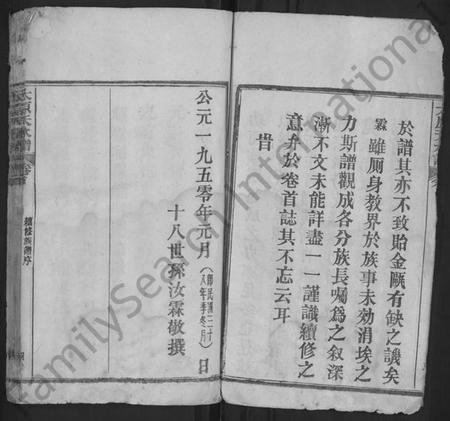 於譜其亦不致貽金甌有缺之譏矣
霖
雖厠身教界於族事未効涓埃之
力斯譜觀成各分族長囑爲之叙深
漸不文未能詳盡一一謹識續修之
意弁於卷首誌其不忘云耳
旹
公元一九五零年元月(即民國三十八年季冬月)日
十八世孫汝霖敬撰
續修族譜序
FamilySearch International